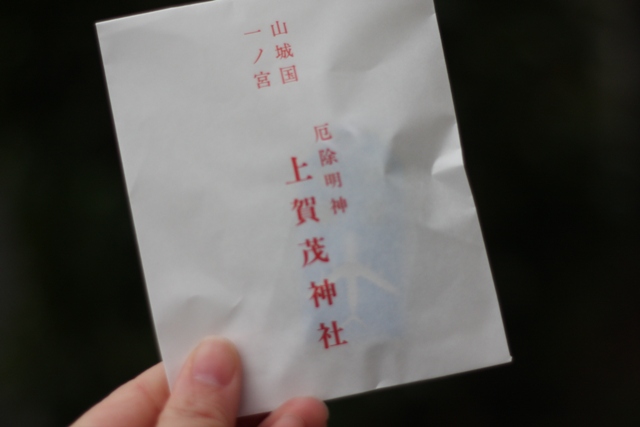 山城国
一ノ宮
厄除明神
上賀茂神社